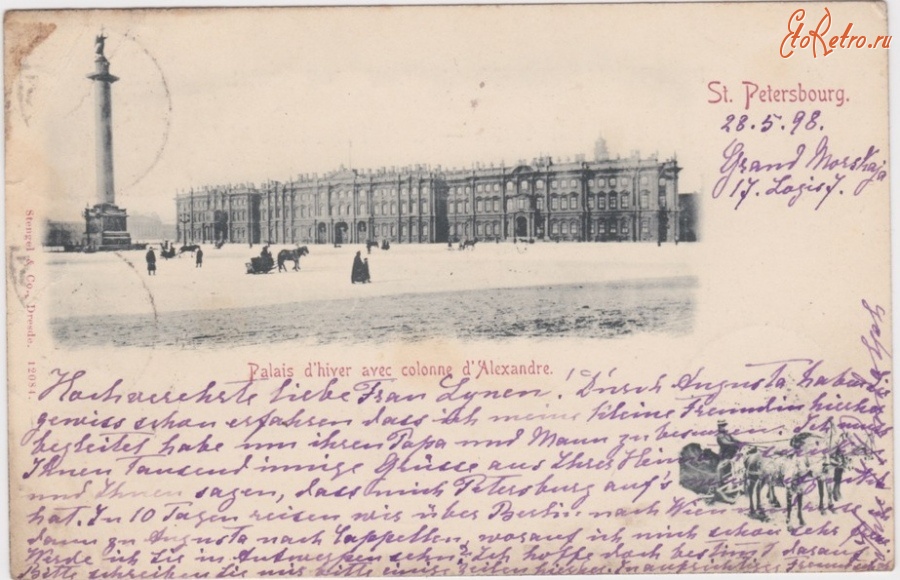 EtoRetro.ru
St. Petersbourg.
28.5.98.
Grand Morskaja
17. Logis 7.
Stengel & Co., Dresde. 12084.
Palais d'hiver avec colonne d'Alexandre.
Hochverehrte liebe Frau Lynen! Durch Augusta haben
gewiss schon erfahren dass ich meine kleine Freundin hierher
begleitet habe um ihren Papa und Mann zu besuchen. Ich muss
Ihnen Tausend innige Grüsse aus Ihrer
und Ihnen sagen, dass mich Petersburg auf's
hat. In 10 Tagen reisen wir über Berlin nach Wien
dann zu Augusta nach Cappellen, worauf ich mich schon sehr
Werde ich Sie in Antwerpen sehn? Ich hoffe doch bestimmt darauf
Bitte schreiben Sie mir bitte einige Zeilen hierher. In aufrichtiger